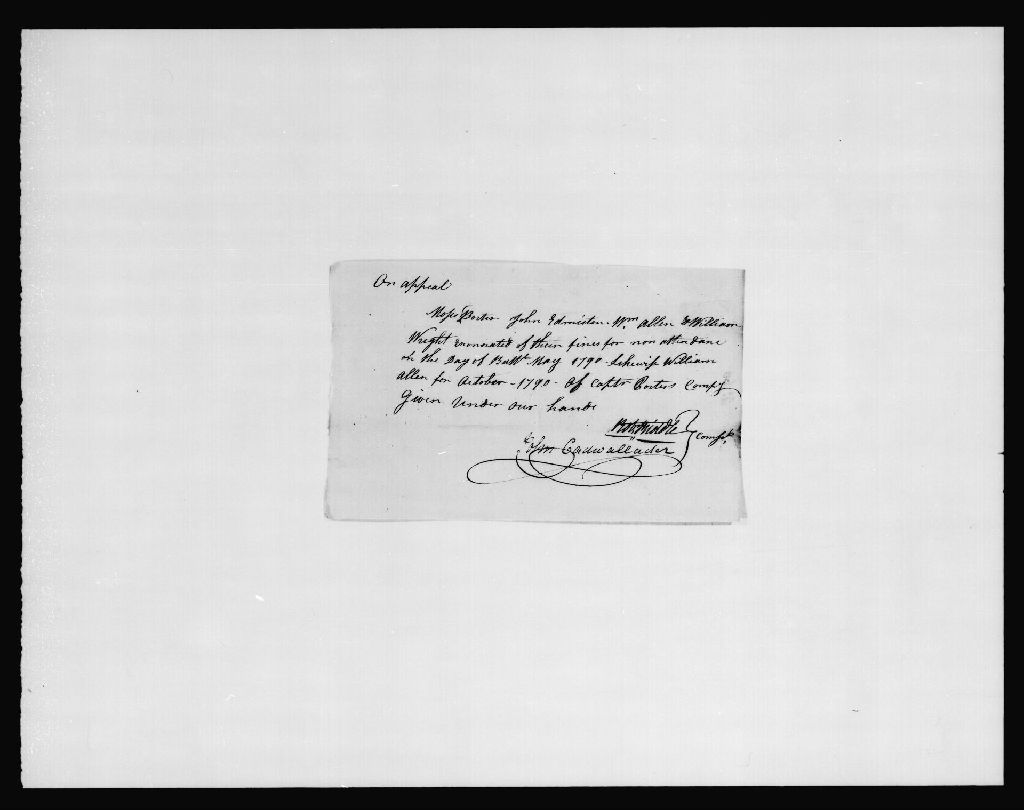 On appeal
Moses Porter John Edmiston Wm Allen & William
Wright exonerated of their fines for non attendance
on the Day of Battn May 1790 Likewise William
Allen for October - 1790 - of Capt Porters Compy
Given under our hands
Comss
Wm Cadwallader